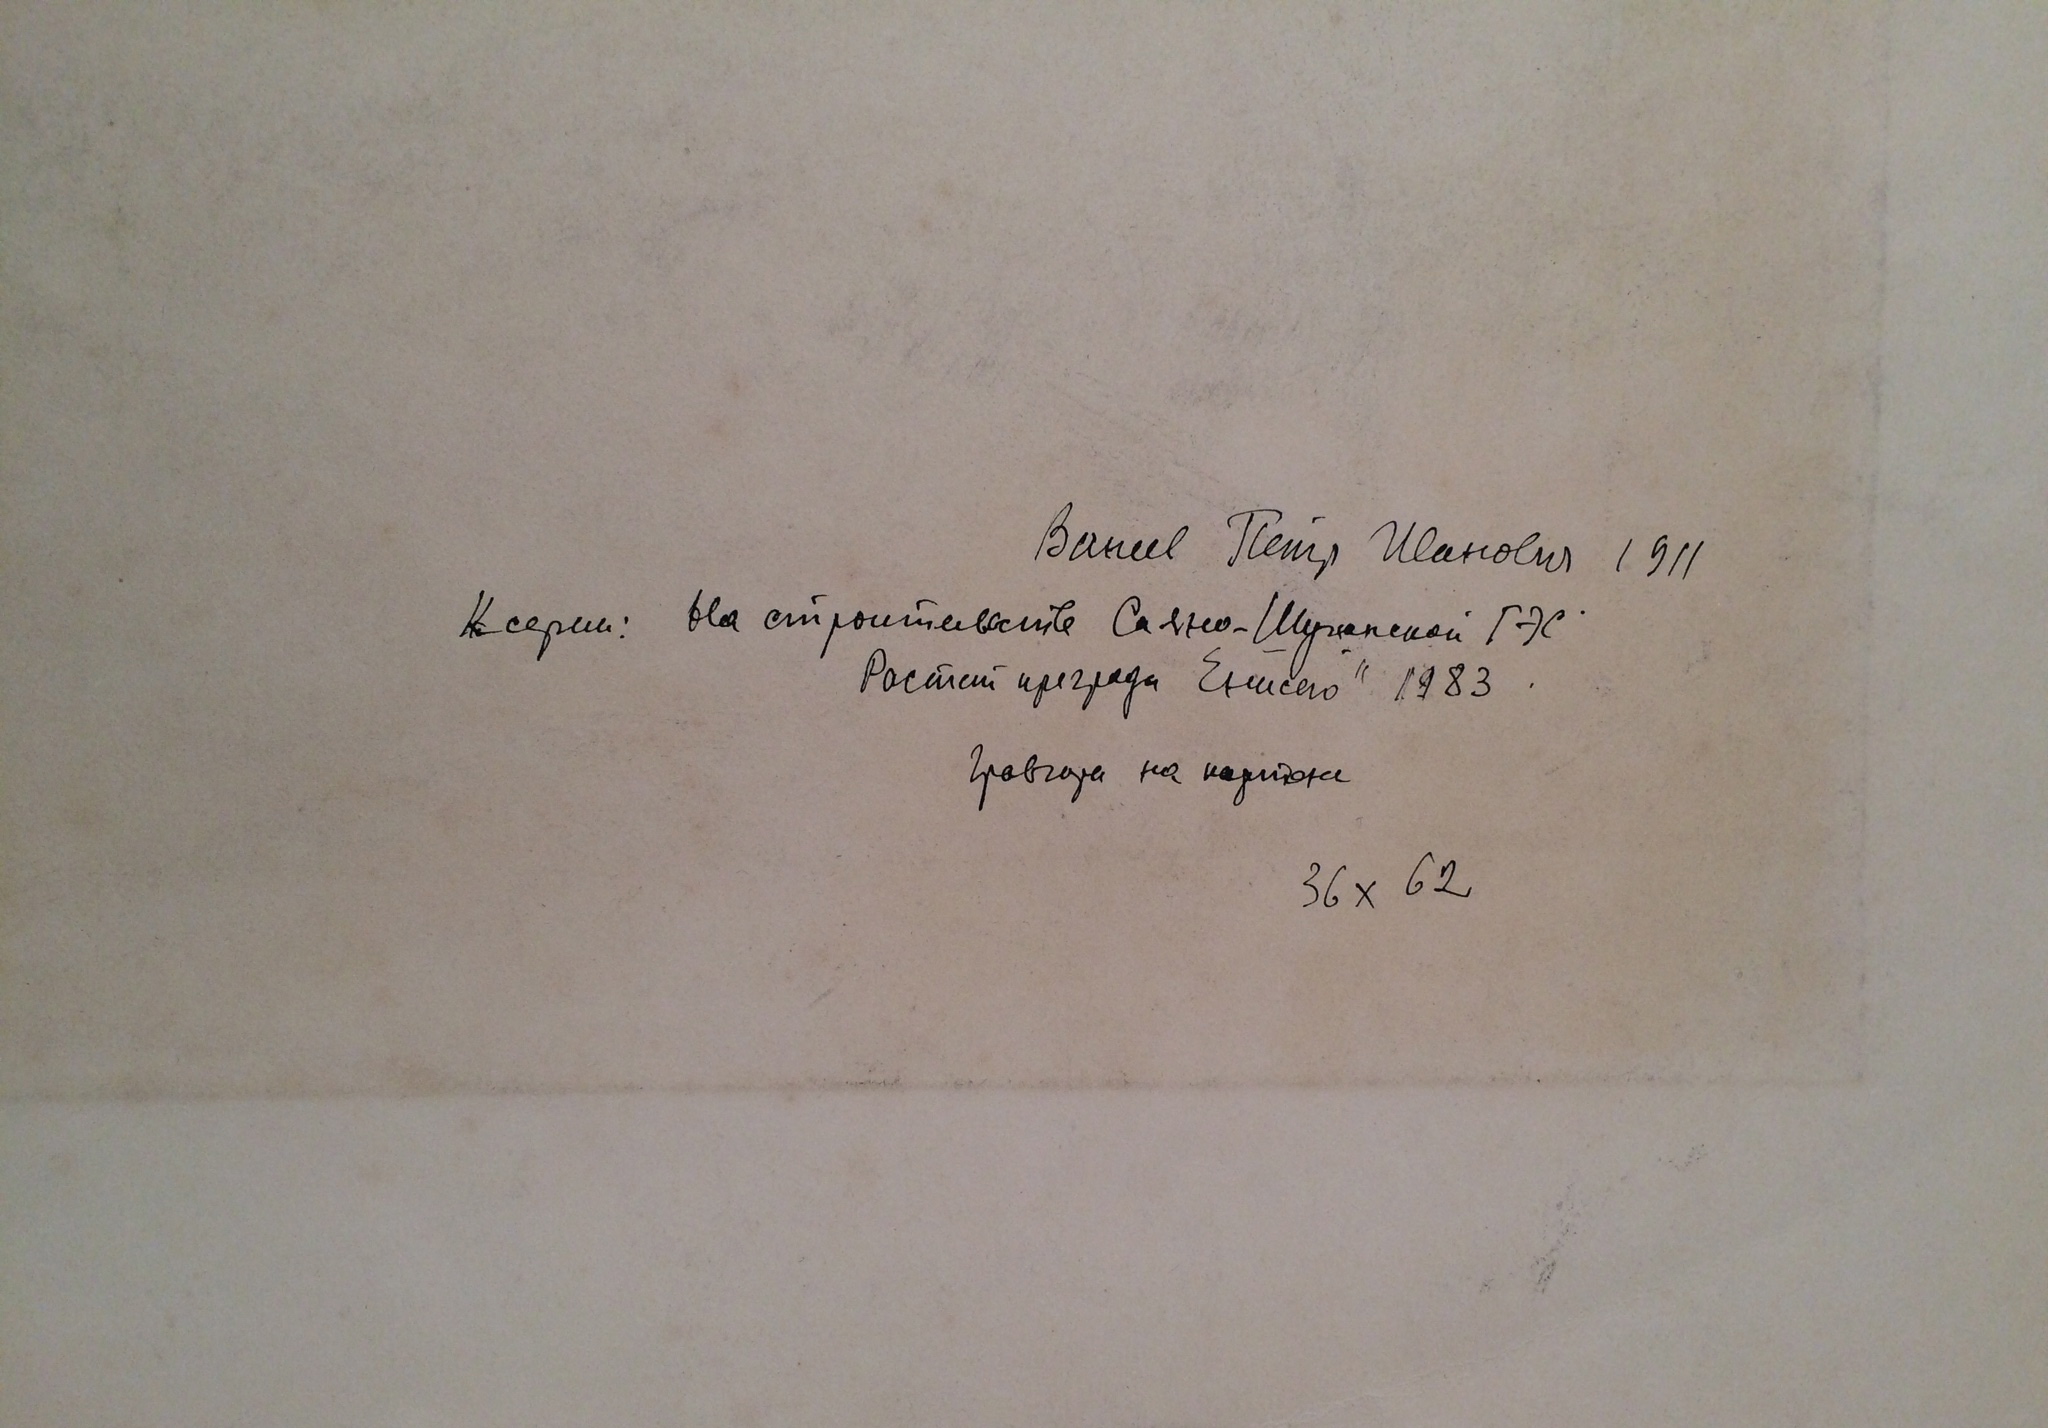 Ванеев Пётр Иванович 1911
К серии: На строительстве Саяно-Шушенской ГЭС
Растет преграда Енисею" 1983
Гравюра на картоне
36 x 62